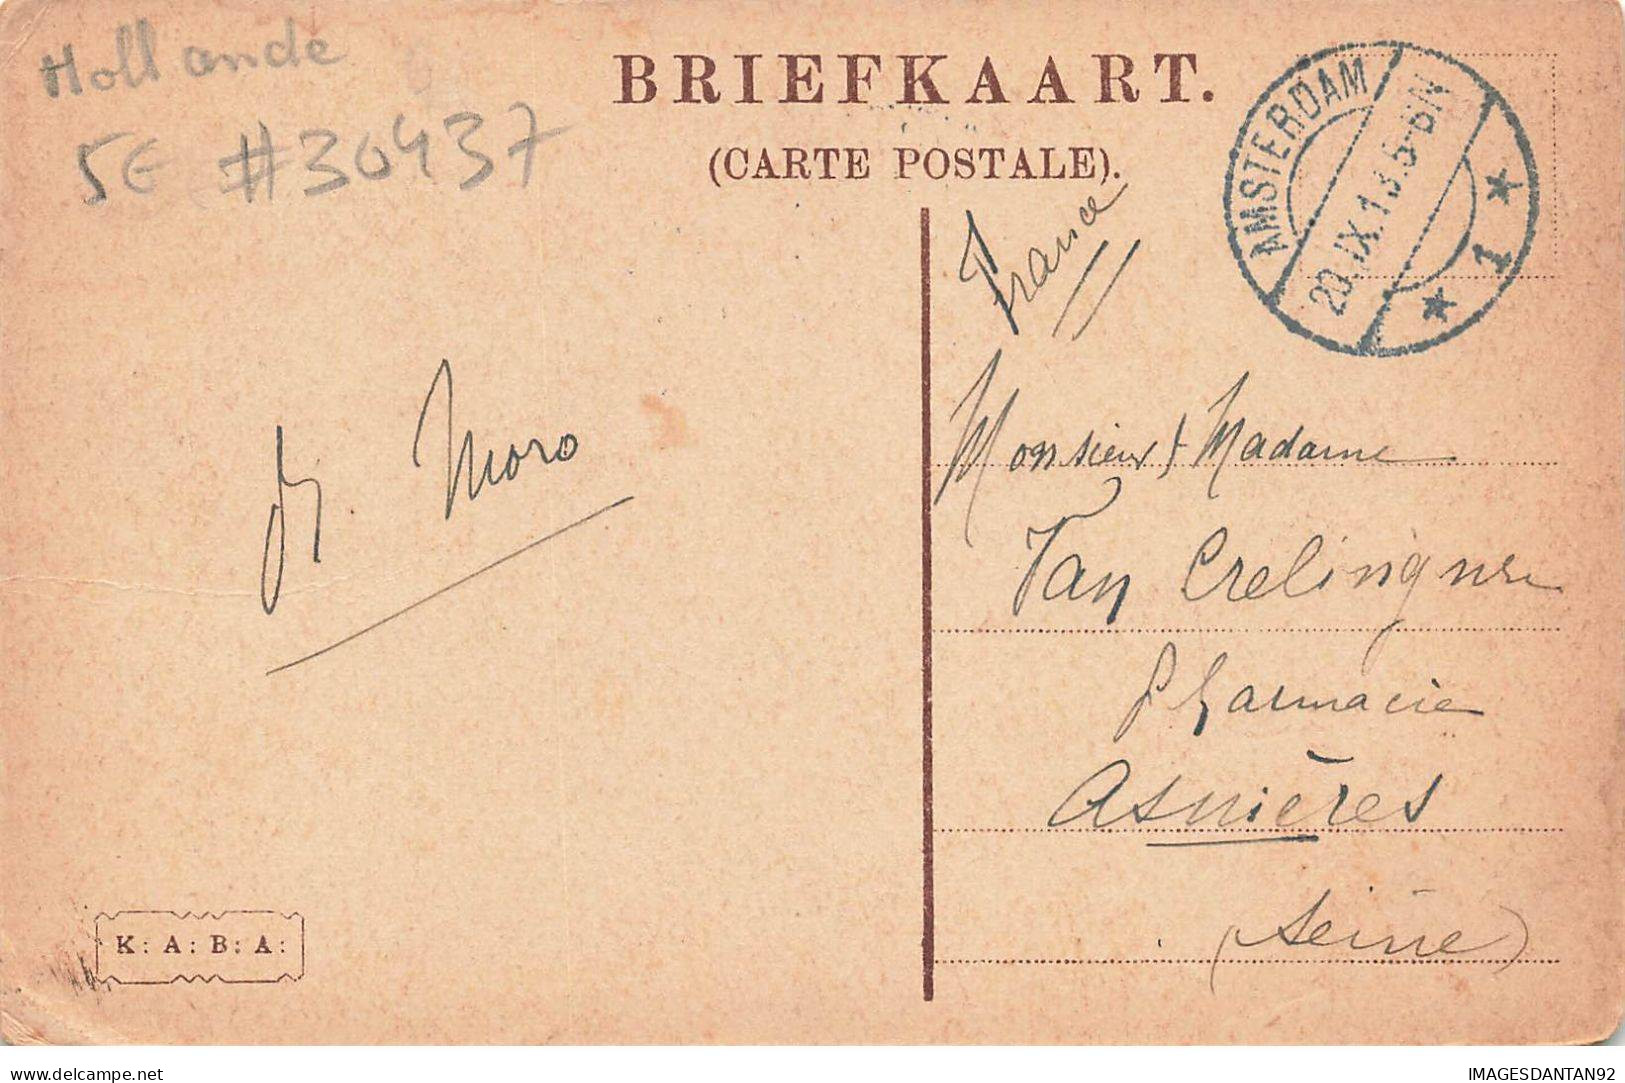 Hollande
5€ #30437
BRIEFKAART.
(CARTE POSTALE).
AMSTERDAM
20.IX.13.5-6N
* 1 *
France
Monsieur & Madame
Van
Pharmacie
Asnières
(Seine)
Moro
K: A: B: A:
delcampe.net
IMAGESDANTAN92